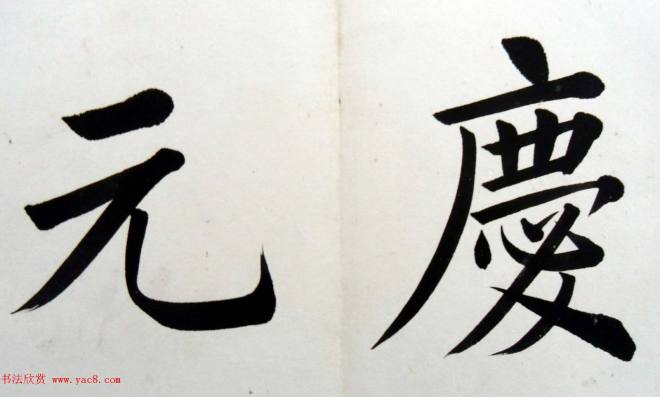 慶
元
书法欣赏 www.yac8.com